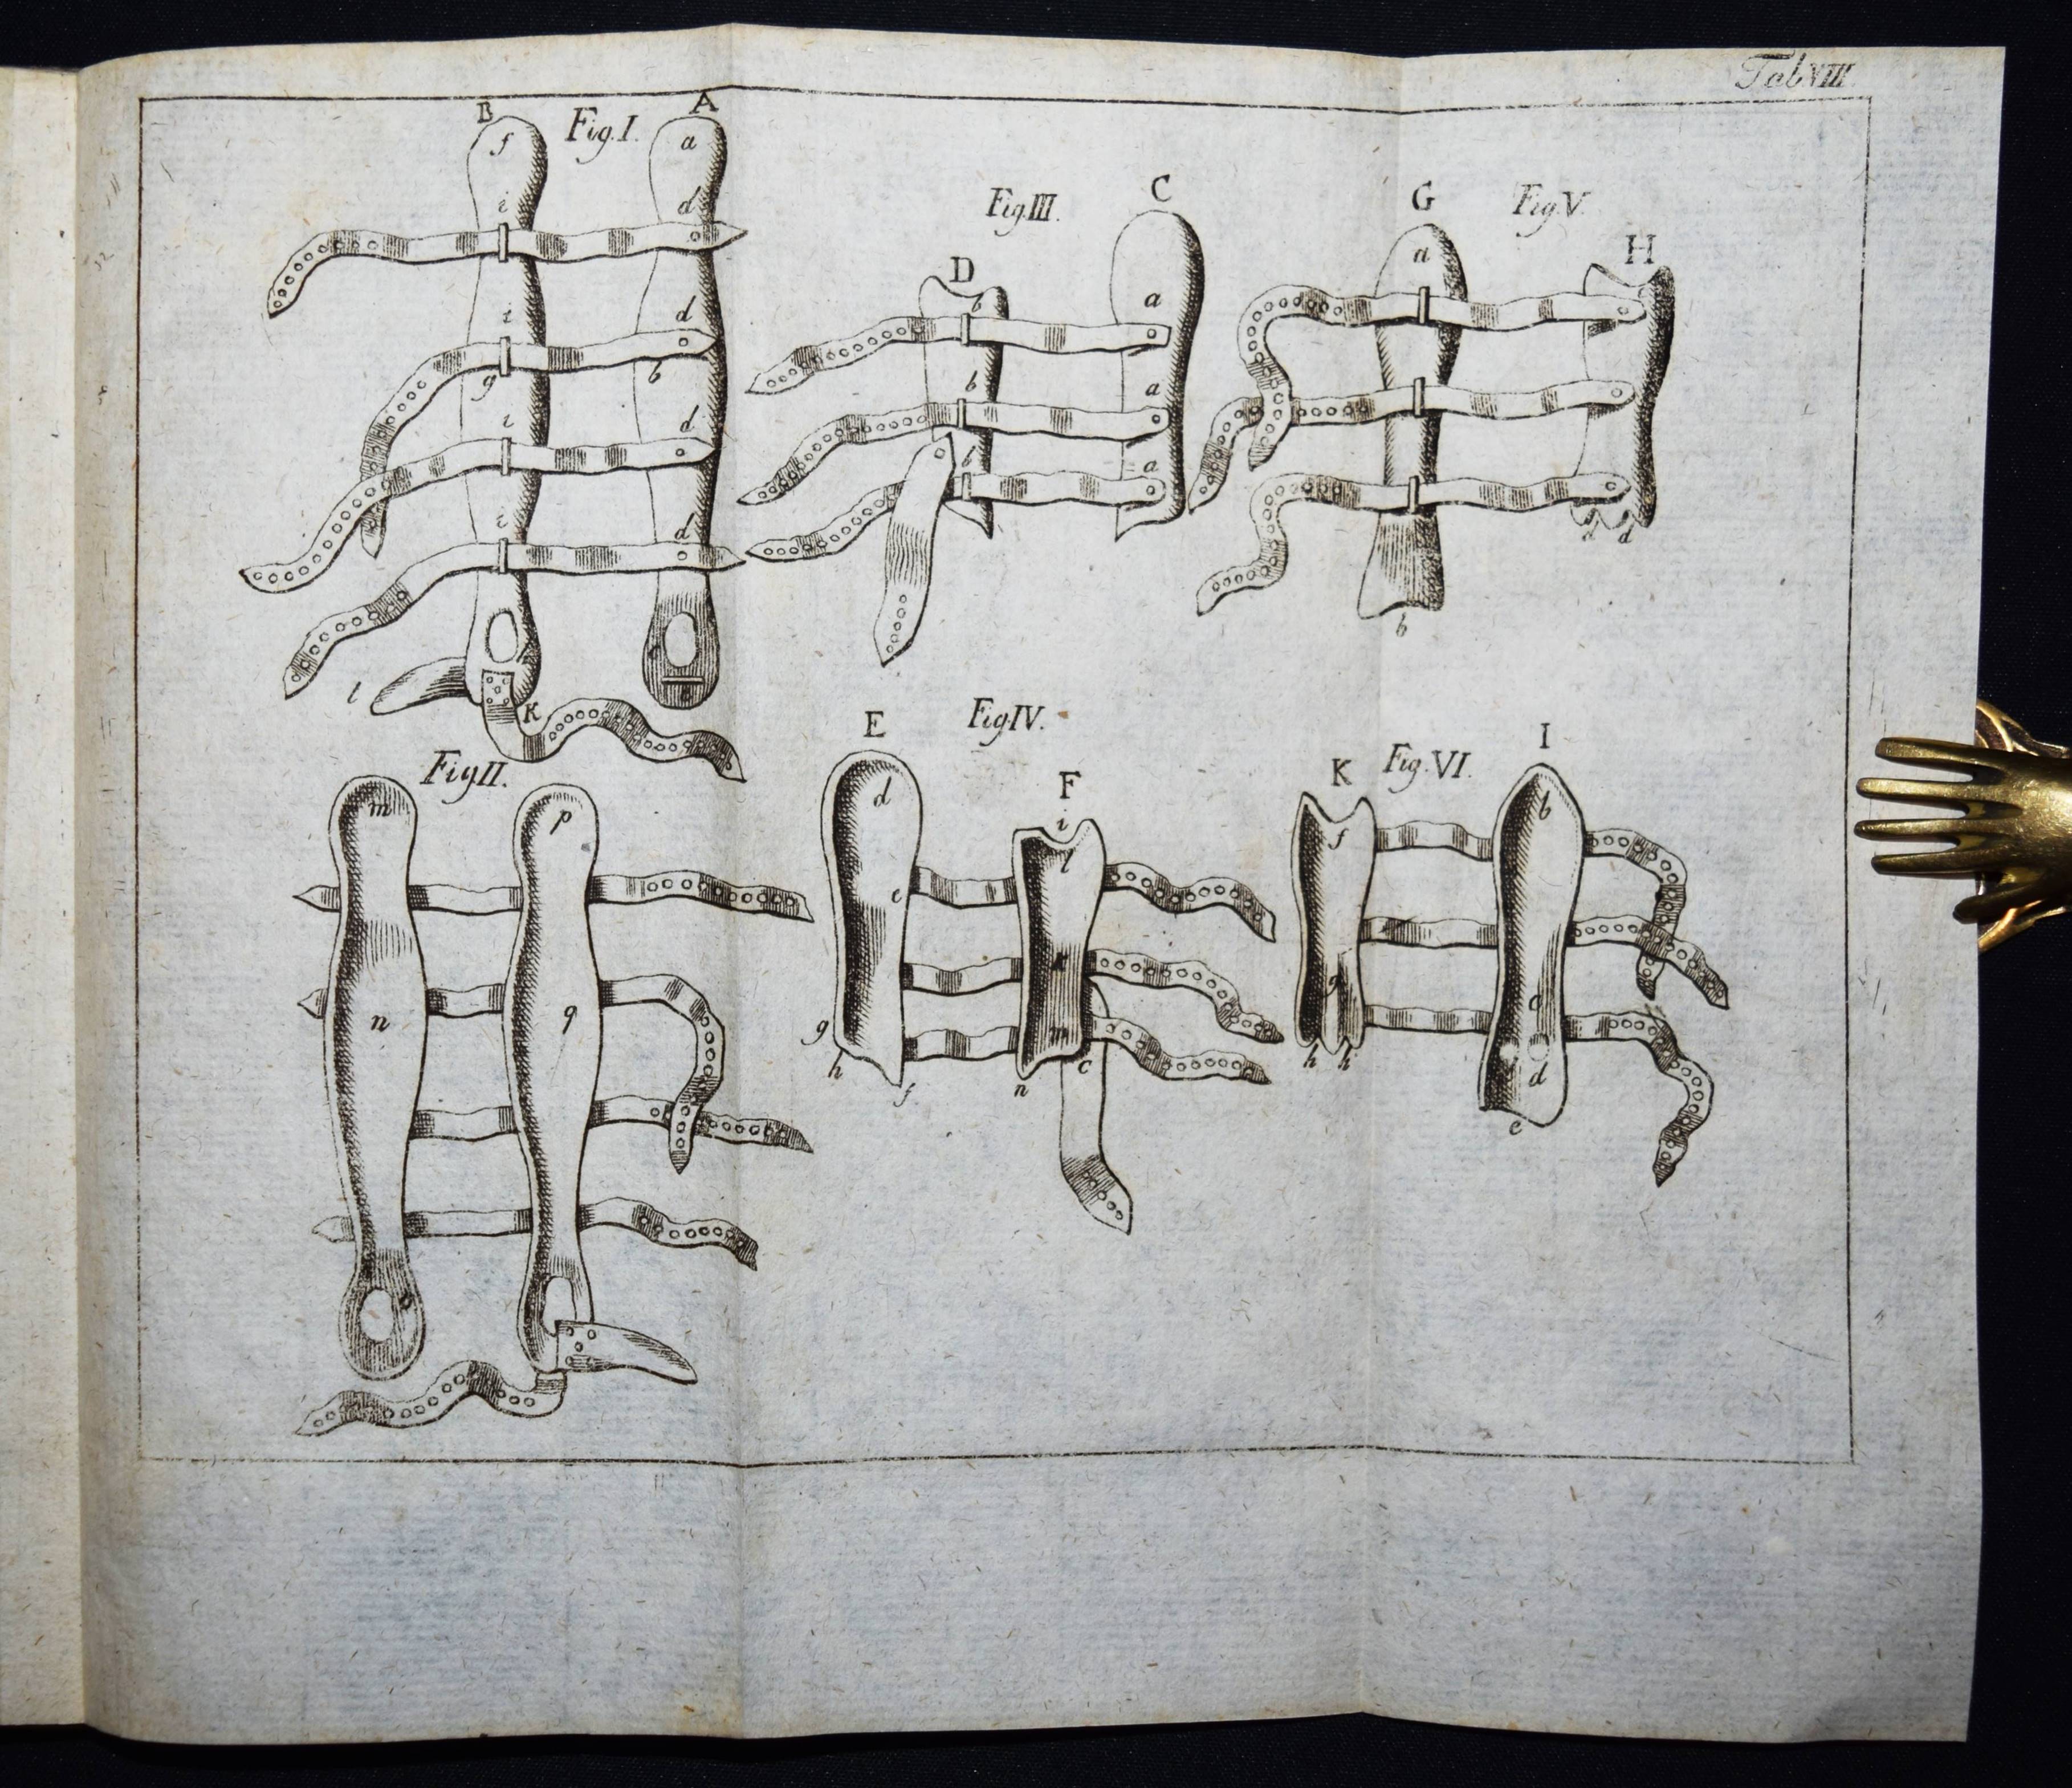 Tab VIII.
B
Fig. I.
A
f
a
i
d
i
d
g
b
i
d
i
d
l
K
Fig. II.
m
p
n
q
Fig. III.
C
D
b
a
b
a
b
a
G
Fig. V.
H
a
c
d
d
b
E
Fig. IV.
F
d
i
l
e
k
g
m
h
f
n
c
K
Fig. VI.
I
f
b
g
c
h
h
d
e